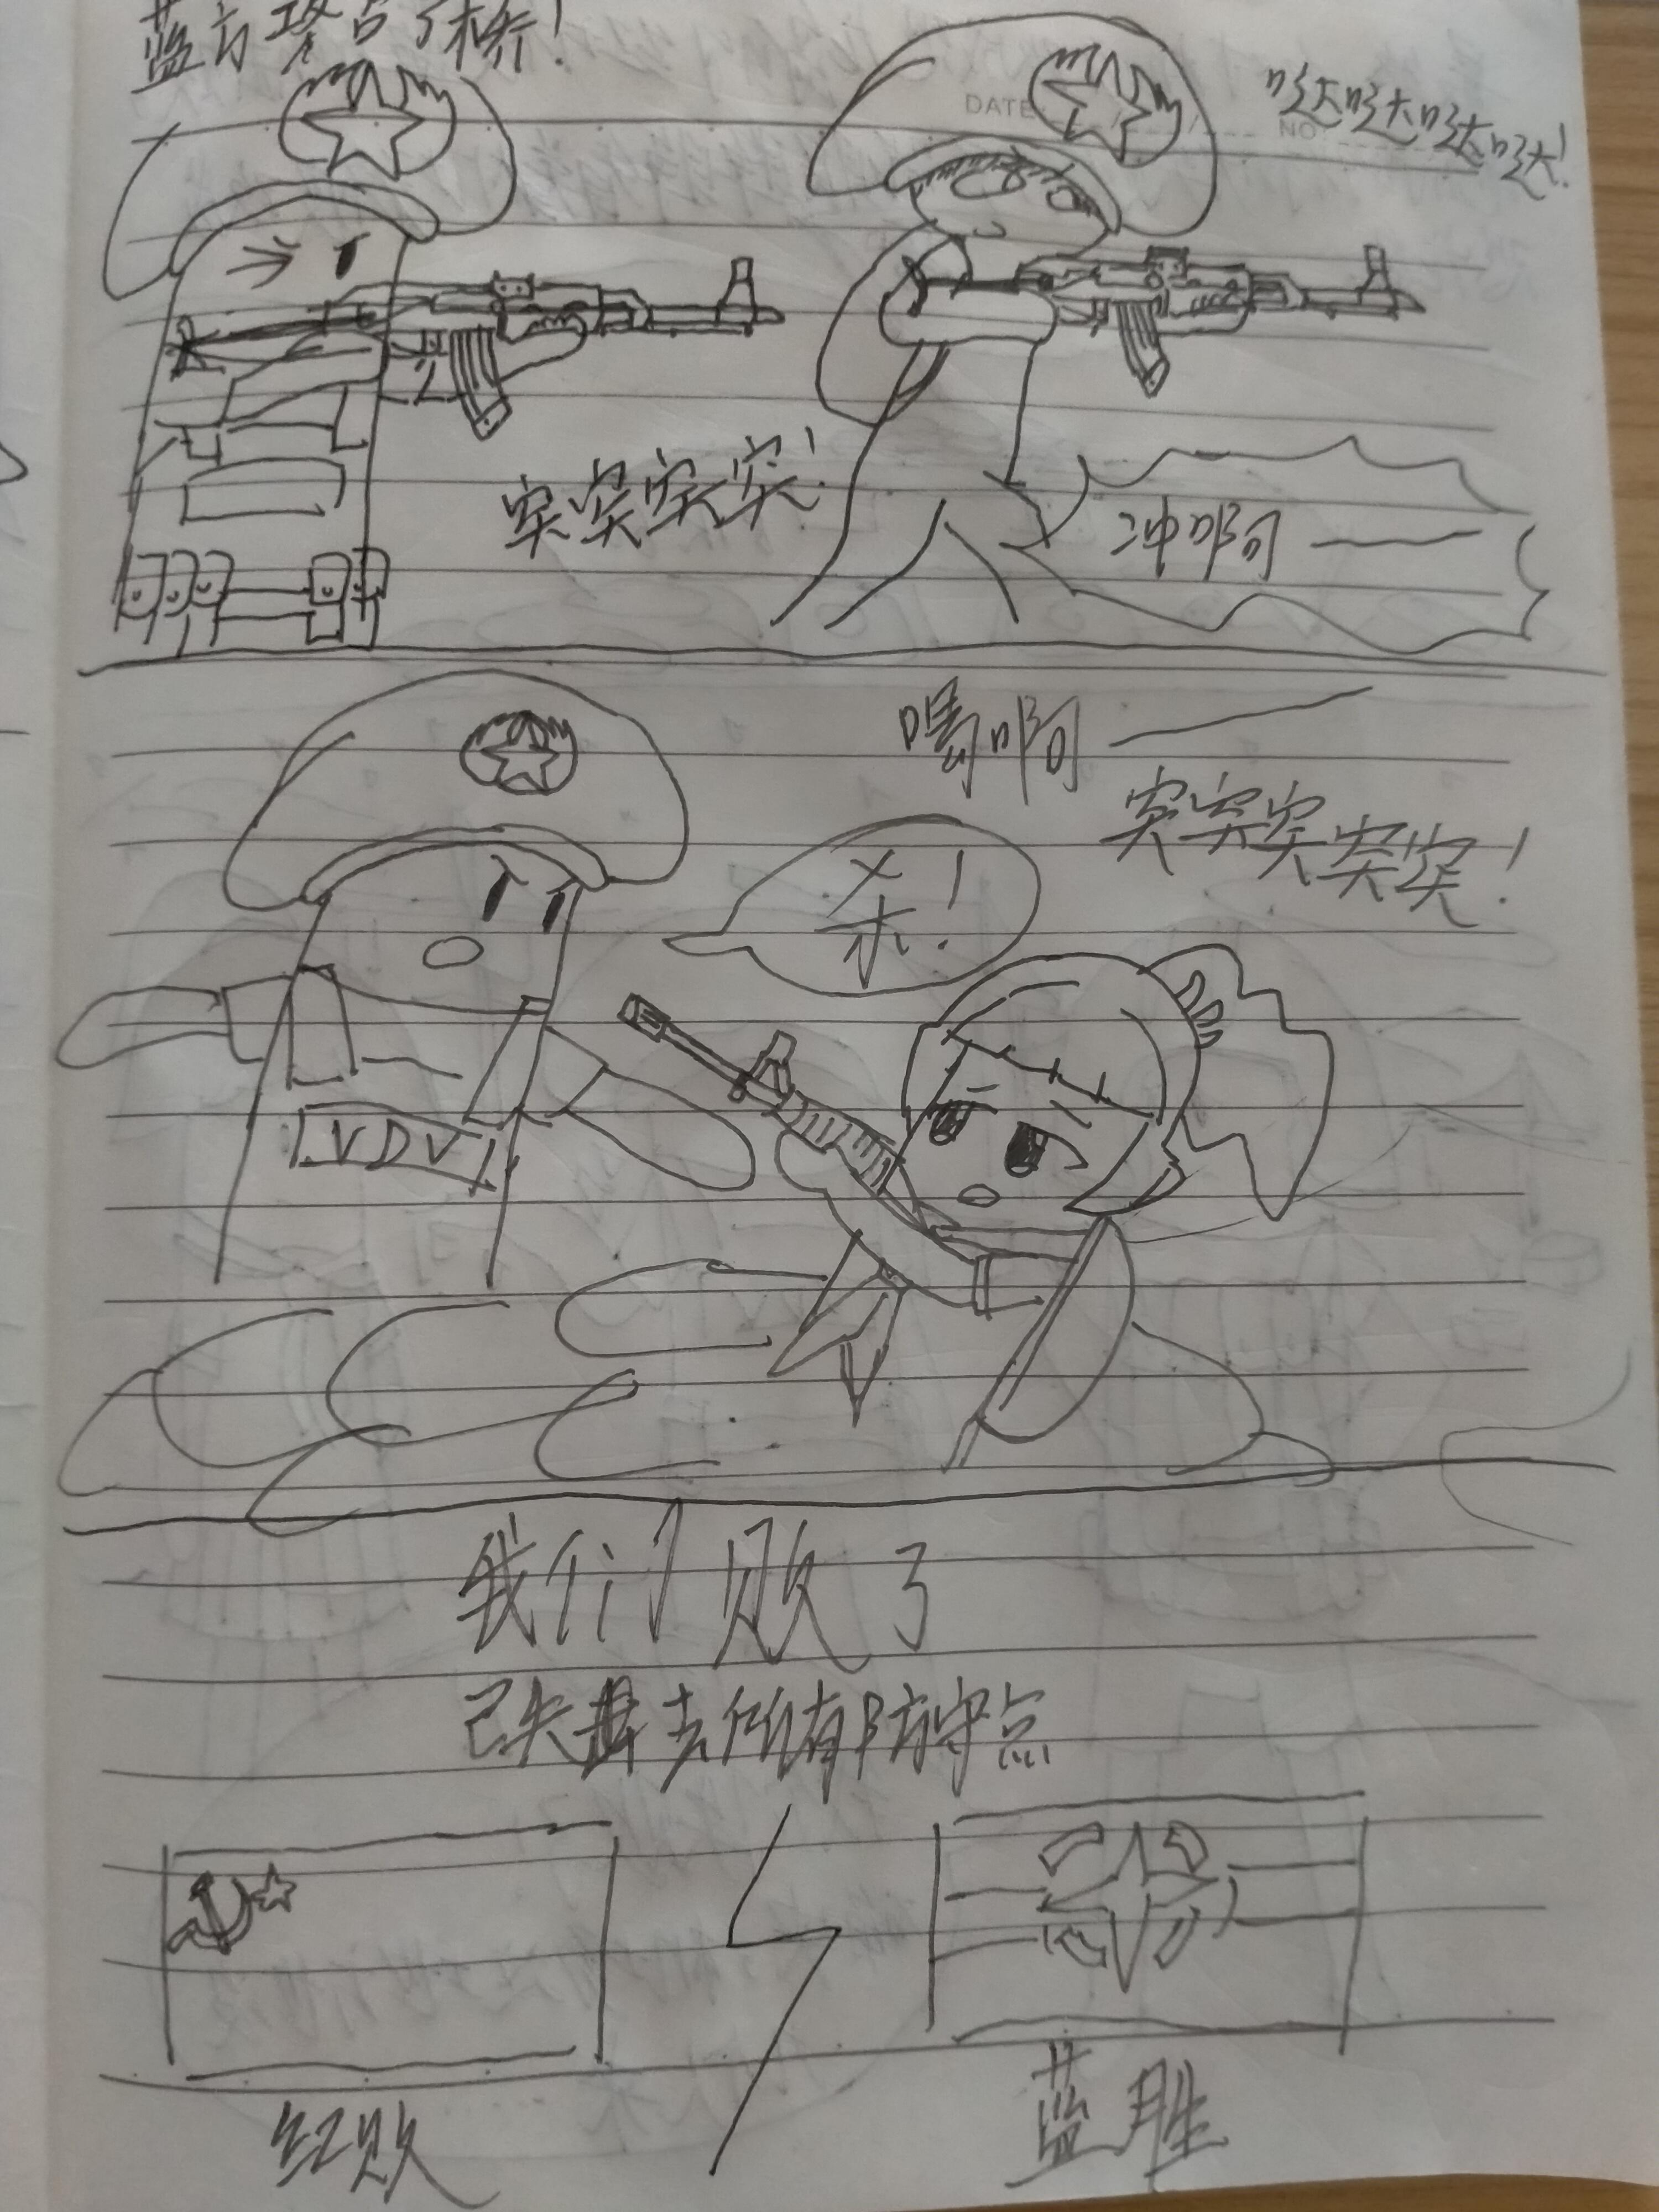 蓝方攻占了桥!
DATE
NO
哒哒哒哒!
突突突突!
冲啊——
啊——
突突突突突!
杀!
VDV
我们败了
已失去所有防守点
红败
蓝胜